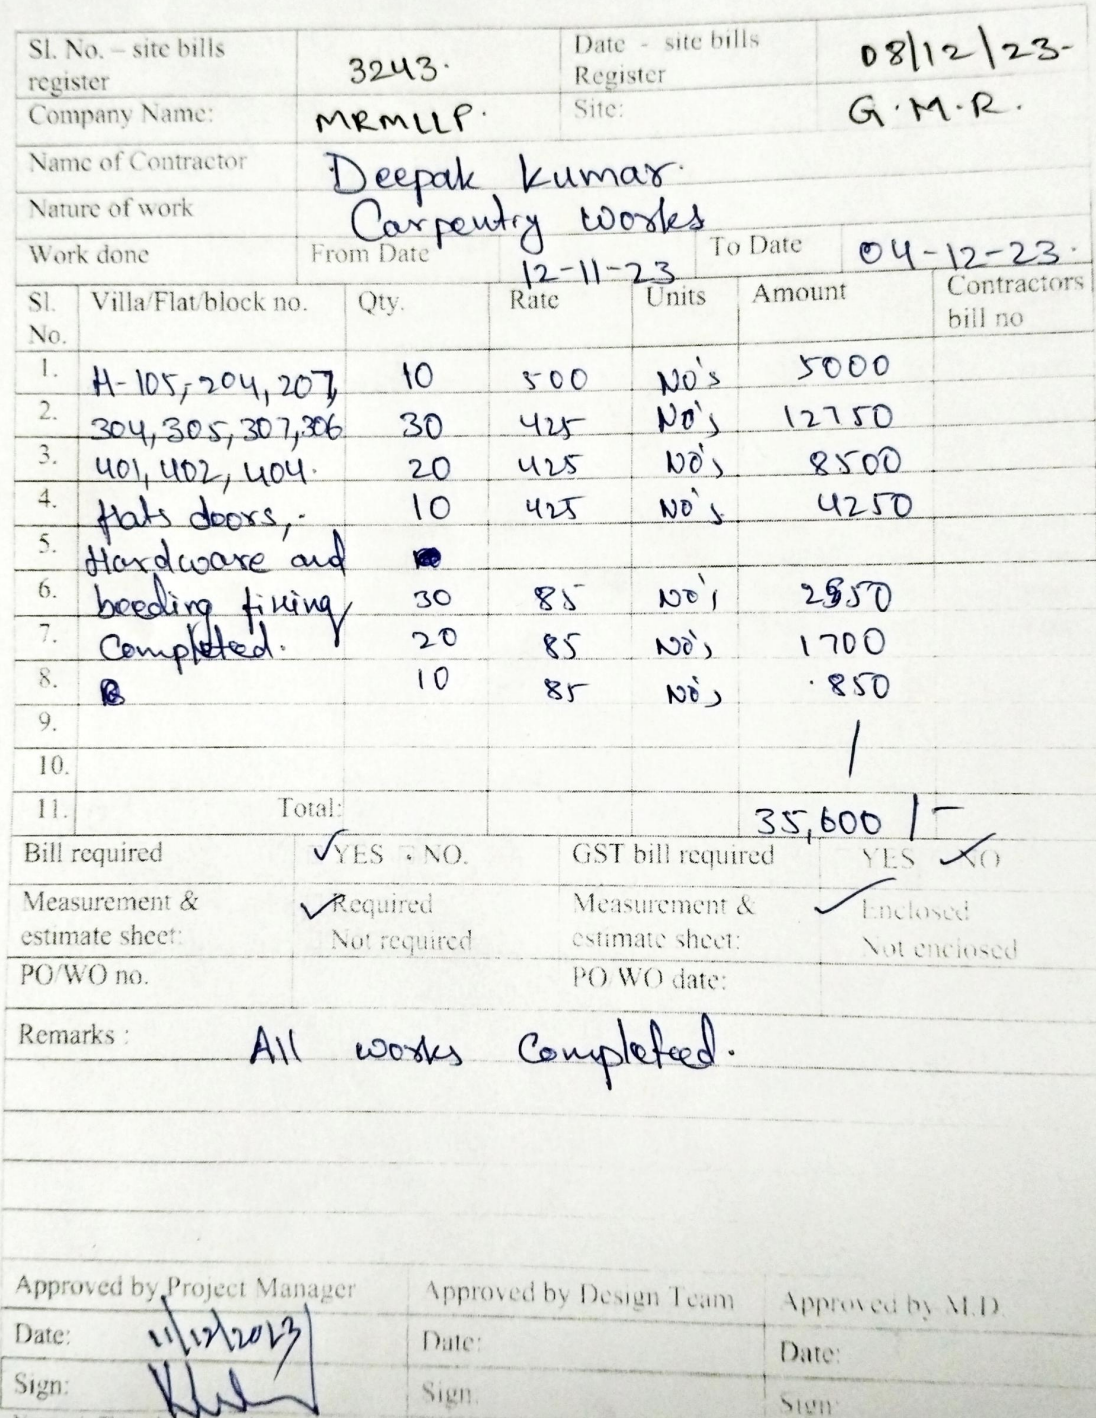 Sl. No. – site bills register 3243. Date - site bills Register 08/12/23-
Company Name: MRMLLP. Site: G.M.R.
Name of Contractor Deepak Kumar.
Nature of work Carpentry Works
Work done From Date 12-11-23 To Date 04-12-23.
Sl. No. Villa/Flat/block no. Qty. Rate Units Amount Contractors bill no
1. H-105, 204, 207, 10 500 No's 5000
2. 304, 305, 307, 306 30 425 No's 12750
3. 401, 402, 404. 20 425 No's 8500
4. flats doors, 10 425 No's 4250
5. Hardware and
6. beeding fixing 30 85 No's 2550
7. Completed. 20 85 No's 1700
8. 10 85 No's 850
9.
10.
11. Total: 35,600/-
Bill required ✓YES NO. GST bill required YES ✓NO
Measurement & estimate sheet: ✓Required Not required Measurement & estimate sheet: ✓Enclosed Not enclosed
PO/WO no. PO/WO date:
Remarks : All works Completed.
Approved by Project Manager Approved by Design Team Approved by M.D.
Date: 11/12/2023 Date: Date:
Sign: Sign: Sign: